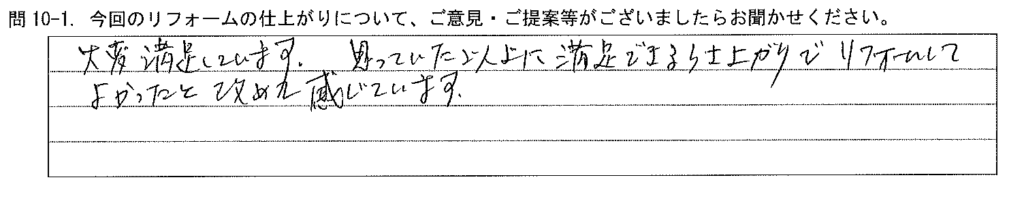 問10-1. 今回のリフォームの仕上がりについて、ご意見・ご提案等がございましたらお聞かせください。
大変満足しています。 思っていた以上に満足できる仕上がりでリフォームして
よかったと改めて感じています。